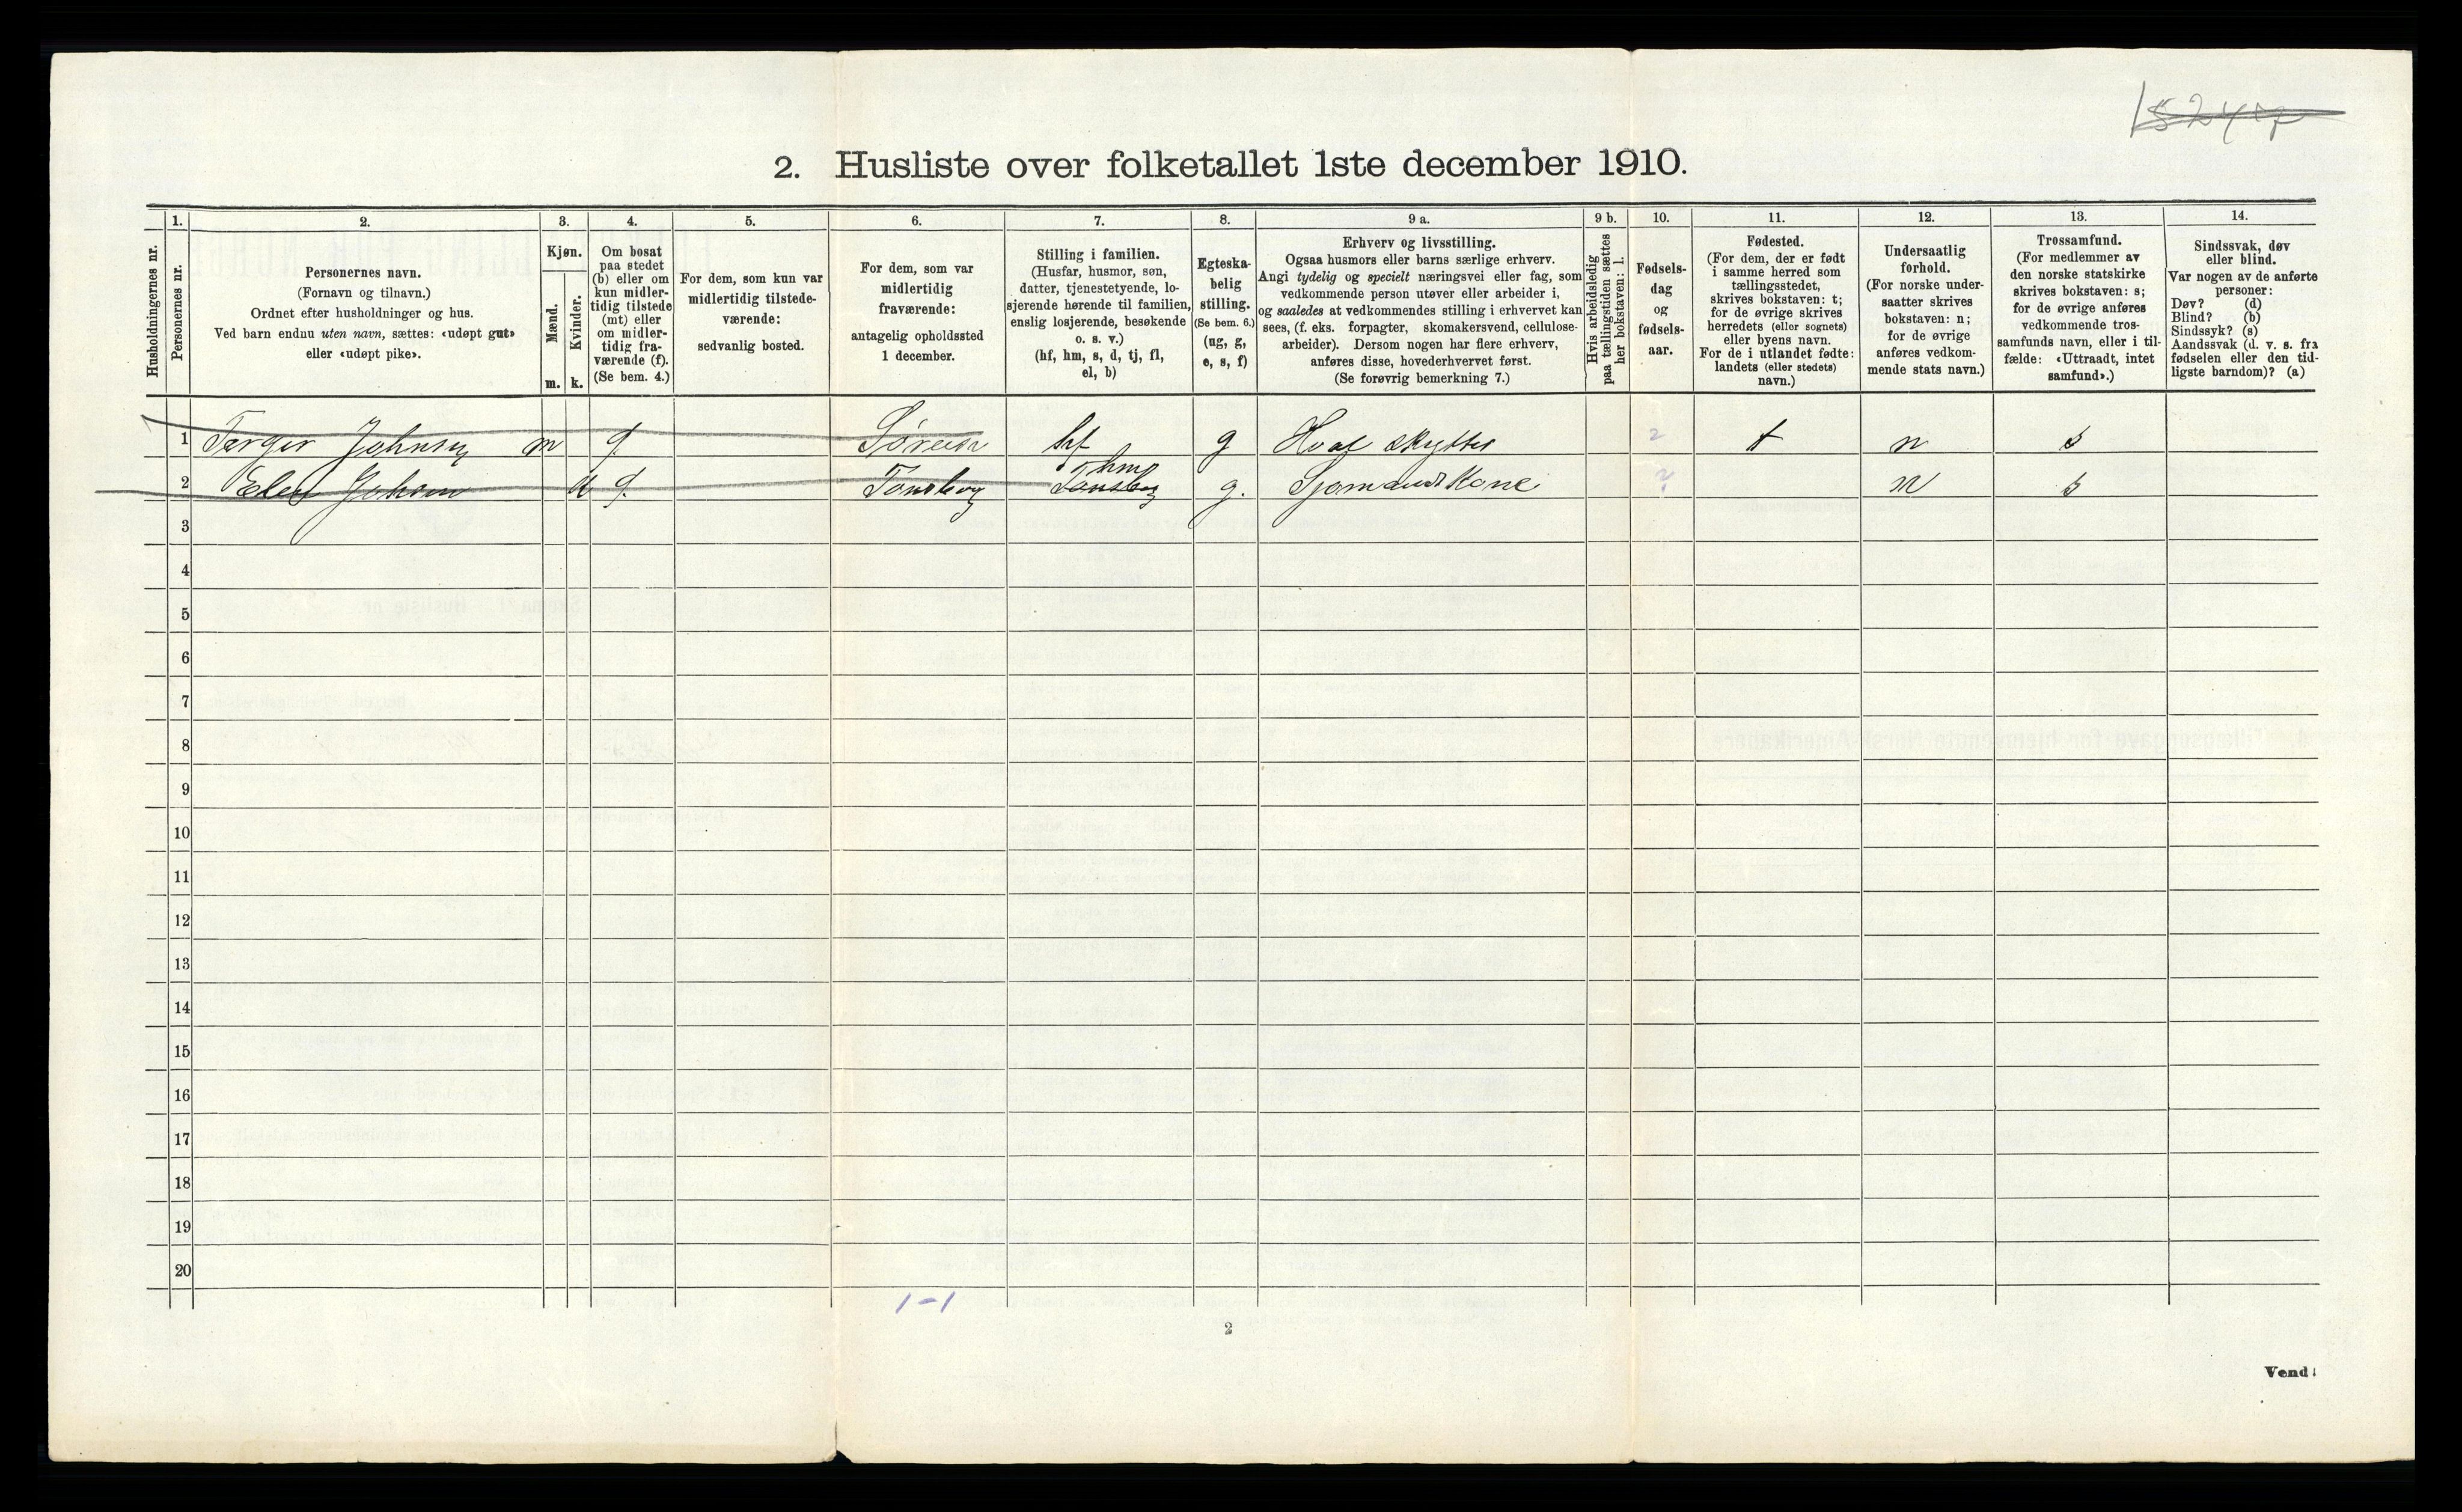 2. Husliste over folketallet 1ste december 1910.
Husholdningernes nr.
1.
Personernes nr.
2.
Personernes navn.
(Fornavn og tilnavn.)
Ordnet efter husholdninger og hus.
Ved barn endnu uten navn, sættes: «udøpt gut»
eller «udøpt pike».
3.
Kjøn.
Mænd.
Kvinder.
m. k.
4.
Om bosat
paa stedet
(b) eller om
kun midler-
tidig tilstede
(mt) eller
om midler-
tidig fra-
værende (f).
(Se bem. 4.)
5.
For dem, som kun var
midlertidig tilstede-
værende:
sedvanlig bosted.
6.
For dem, som var
midlertidig
fraværende:
antagelig opholdssted
1 december.
7.
Stilling i familien.
(Husfar, husmor, søn,
datter, tjenestetyende, lo-
sjerende hørende til familien,
enslig losjerende, besøkende
o. s. v.)
(hf, hm, s, d, tj, fl,
el, b)
8.
Egteska-
belig
stilling.
(Se bem. 6.)
(ug, g,
e, s, f)
9 a.
Erhverv og livsstilling.
Ogsaa husmors eller barns særlige erhverv.
Angi tydelig og specielt næringsvei eller fag, som
vedkommende person utøver eller arbeider i,
og saaledes at vedkommendes stilling i erhvervet kan
sees, (f. eks. forpagter, skomakersvend, cellulose-
arbeider). Dersom nogen har flere erhverv,
anføres disse, hovederhvervet først.
(Se forøvrig bemerkning 7.)
9 b.
Hvis arbeidsledig
paa tællingstiden sættes
her bokstaven: l.
10.
Fødsels-
dag
og
fødsels-
aar.
11.
Fødested.
(For dem, der er født
i samme herred som
tællingsstedet,
skrives bokstaven: t;
for de øvrige skrives
herredets (eller sognets)
eller byens navn.
For de i utlandet fødte:
landets (eller stedets)
navn.)
12.
Undersaatlig
forhold.
(For norske under-
saatter skrives
bokstaven: n;
for de øvrige
anføres vedkom-
mende stats navn.)
13.
Trossamfund.
(For medlemmer av
den norske statskirke
skrives bokstaven: s;
for de øvrige anføres
vedkommende tros-
samfunds navn, eller i til-
fælde: «Uttraadt, intet
samfund».)
14.
Sindssvak, døv
eller blind.
Var nogen av de anførte
personer:
Døv? (d)
Blind? (b)
Sindssyk? (s)
Aandssvak (d. v. s. fra
fødselen eller den tid-
ligste barndom)? (a)
1 Johnsen m f. hf g Hval skytter t n s
2 Elen k f. Tønsberg hm Tønsberg g. Sjømands Kone ? n s
3
4
5
6
7
8
9
10
11
12
13
14
15
16
17
18
19
20
1-1
2
Vend!